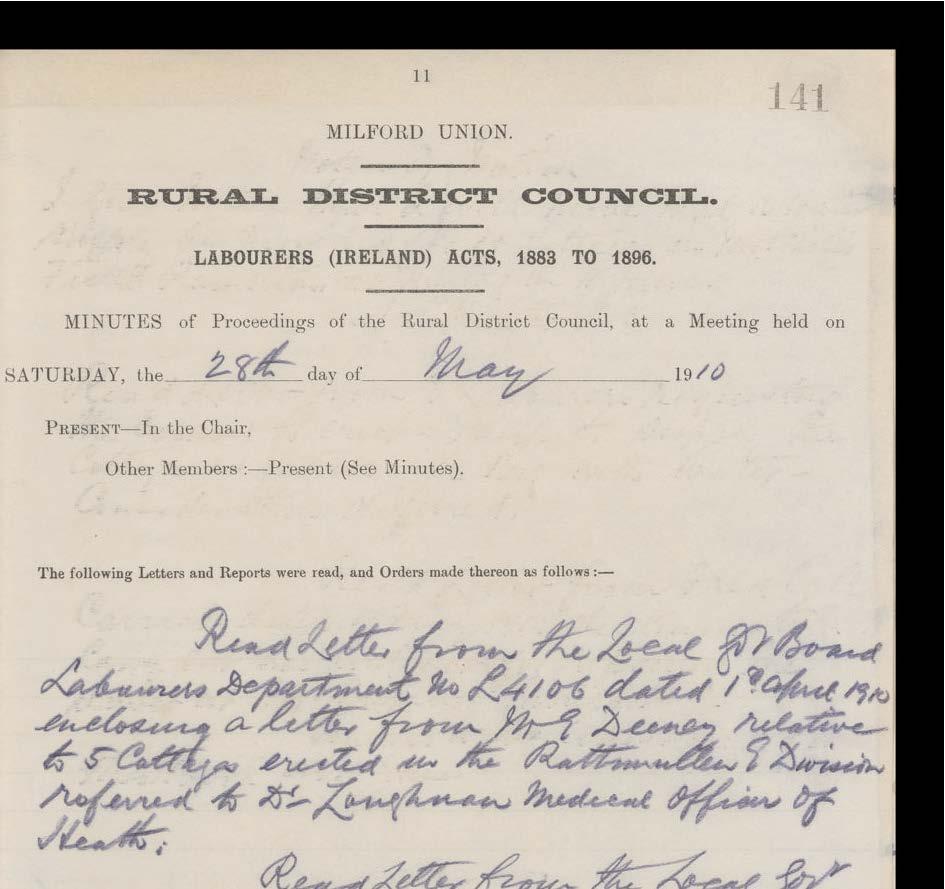 11
141
MILFORD UNION.
RURAL DISTRICT COUNCIL.
LABOURERS (IRELAND) ACTS, 1883 TO 1896.
MINUTES of Proceedings of the Rural District Council, at a Meeting held on
SATURDAY, the 28th day of May 1910
PRESENT—In the Chair,
Other Members :—Present (See Minutes).
The following Letters and Reports were read, and Orders made thereon as follows :—
Read Letter from the Local Gvt Board
Labourers Department No L4106 dated 1st April 1910
enclosing a letter from Mr E Deeney relative
to 5 Cottages erected in the Rathmullen E Division
referred to Dr Loughnan Medical Officer of
Heath.
Read Letter from the Local Govt